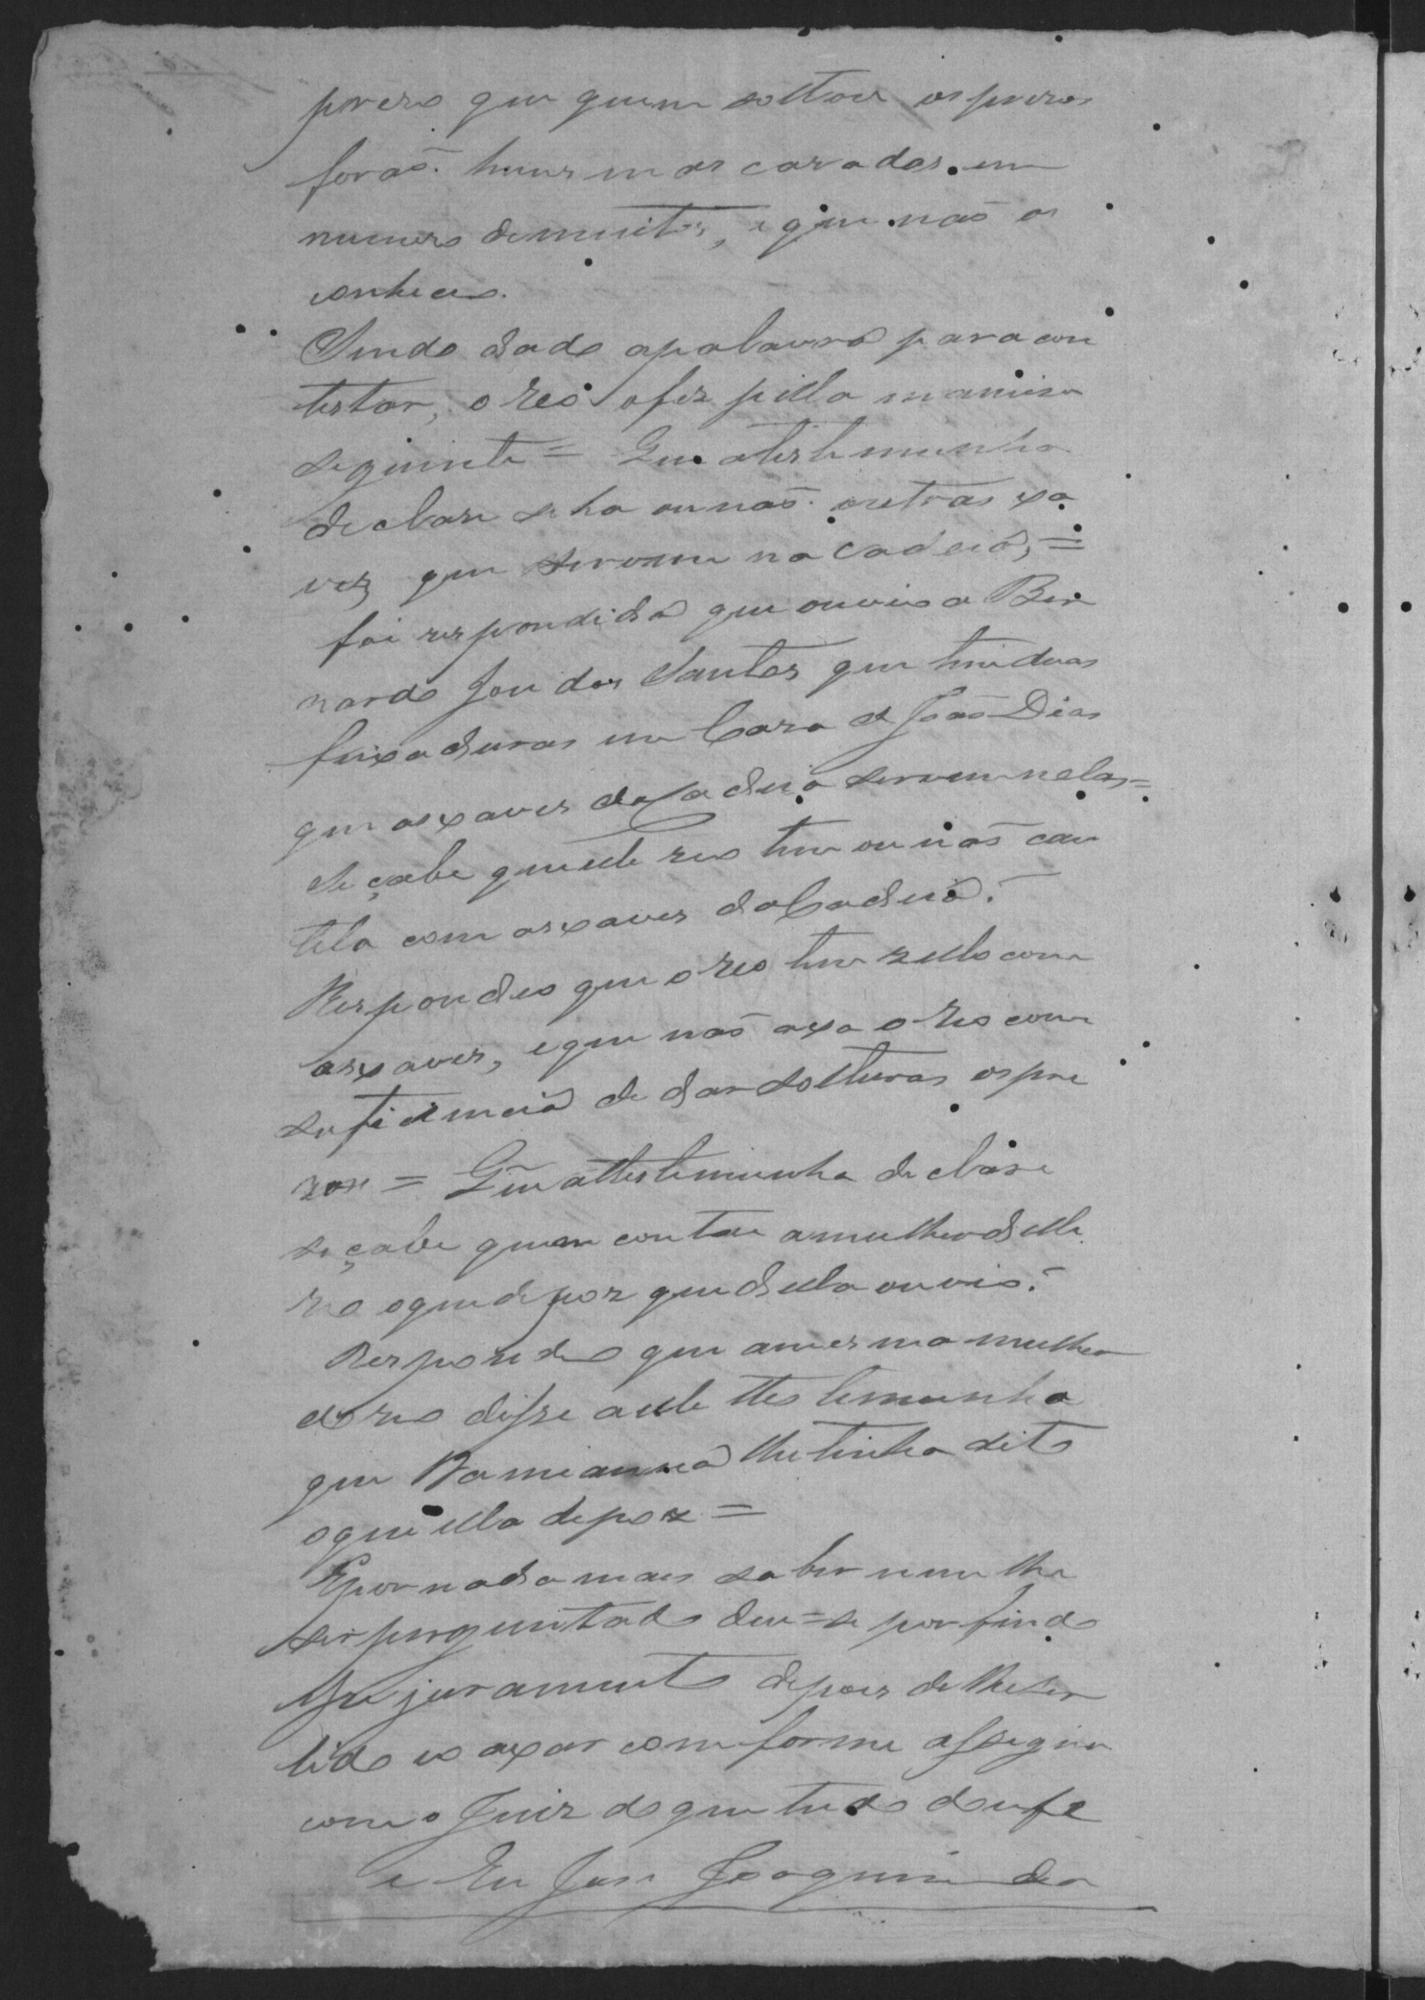 porem que quem soltou os prezos
forão huns mascarados em
numero de muitos, e que não os
conheceo.
Sendo dado apalavra para con
testar, o reo ofez pella maneira
seguinte = Que atestemunha
declare se ha ounão outras xa
ves que servem na Cadeia, =
foi respondido que ouvio a Ber
nardo José dos Santos que tem duas
feixaduras em Caza de João Dias
que asxaves da Cadeia servem nelas =
Se çabe queelle reo tem ou não cau
tela com asxaves da Cadeia.
Respondeo que o reo tem zello com
asxaves, eque não axa o reo com
suficiencia de dar solturas ospre
zos = Que attestemunha declare
se çabe quem contou amulher delle
reo oque depoz que della ouvio.
Respondeo que amesma mulher
do reo disse aelle ttestemunha
que Damianna lhe tinha dito
oque ella depoz =
Epor nada mais saber nem lhe
ser perguntado deu=se por findo
este juramento depois de lhe ser
lido eo axar comforme assigna
com o Juiz do que tudo doufé
e Eu José Joaquim da